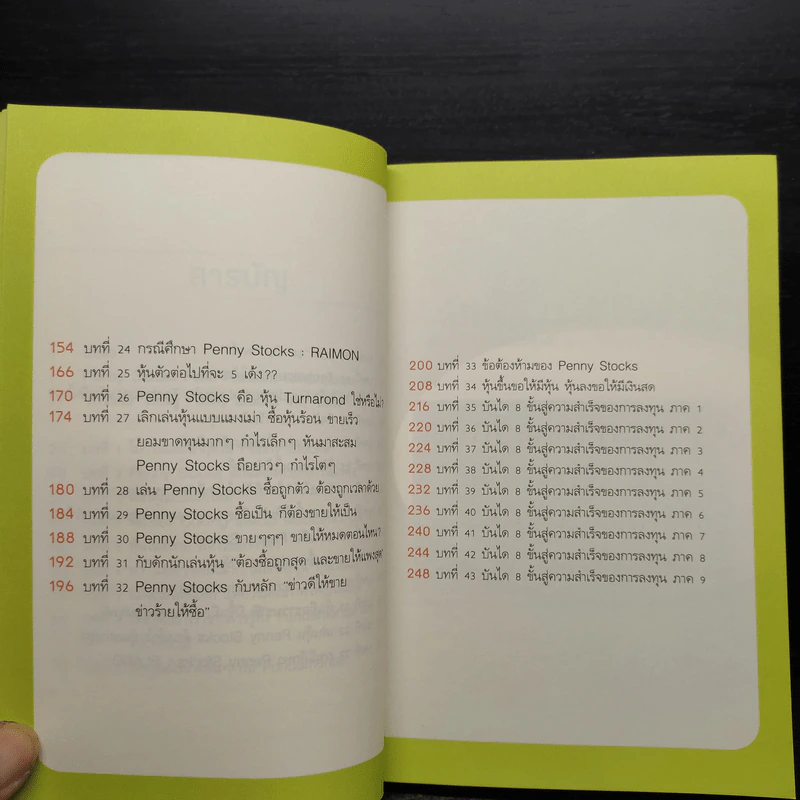 154 บทที่ 24 กรณีศึกษา Penny Stocks : RAIMON
166 บทที่ 25 หุ้นตัวต่อไปที่จะ 5 เด้ง??
170 บทที่ 26 Penny Stocks คือ หุ้น Turnarond ใช่หรือไม่?
174 บทที่ 27 เลิกเล่นหุ้นแบบแมงเม่า ซื้อหุ้นร้อน ขายเร็ว
ยอมขาดทุนมากๆ กำไรเล็กๆ หันมาสะสม
Penny Stocks ถือยาวๆ กำไรโตๆ
180 บทที่ 28 เล่น Penny Stocks ซื้อถูกตัว ต้องถูกเวลาด้วย
184 บทที่ 29 Penny Stocks ซื้อเป็น ก็ต้องขายให้เป็น
188 บทที่ 30 Penny Stocks ขายๆๆๆ ขายให้หมดตอนไหน?
192 บทที่ 31 กับดักนักเล่นหุ้น "ต้องซื้อถูกสุด และขายให้แพงสุด"
196 บทที่ 32 Penny Stocks กับหลัก "ข่าวดีให้ขาย
ข่าวร้ายให้ซื้อ"
200 บทที่ 33 ข้อต้องห้ามของ Penny Stocks
208 บทที่ 34 หุ้นขึ้นขอให้มีหุ้น หุ้นลงขอให้มีเงินสด
216 บทที่ 35 บันได 8 ขั้นสู่ความสำเร็จของการลงทุน ภาค 1
220 บทที่ 36 บันได 8 ขั้นสู่ความสำเร็จของการลงทุน ภาค 2
224 บทที่ 37 บันได 8 ขั้นสู่ความสำเร็จของการลงทุน ภาค 3
228 บทที่ 38 บันได 8 ขั้นสู่ความสำเร็จของการลงทุน ภาค 4
232 บทที่ 39 บันได 8 ขั้นสู่ความสำเร็จของการลงทุน ภาค 5
236 บทที่ 40 บันได 8 ขั้นสู่ความสำเร็จของการลงทุน ภาค 6
240 บทที่ 41 บันได 8 ขั้นสู่ความสำเร็จของการลงทุน ภาค 7
244 บทที่ 42 บันได 8 ขั้นสู่ความสำเร็จของการลงทุน ภาค 8
248 บทที่ 43 บันได 8 ขั้นสู่ความสำเร็จของการลงทุน ภาค 9